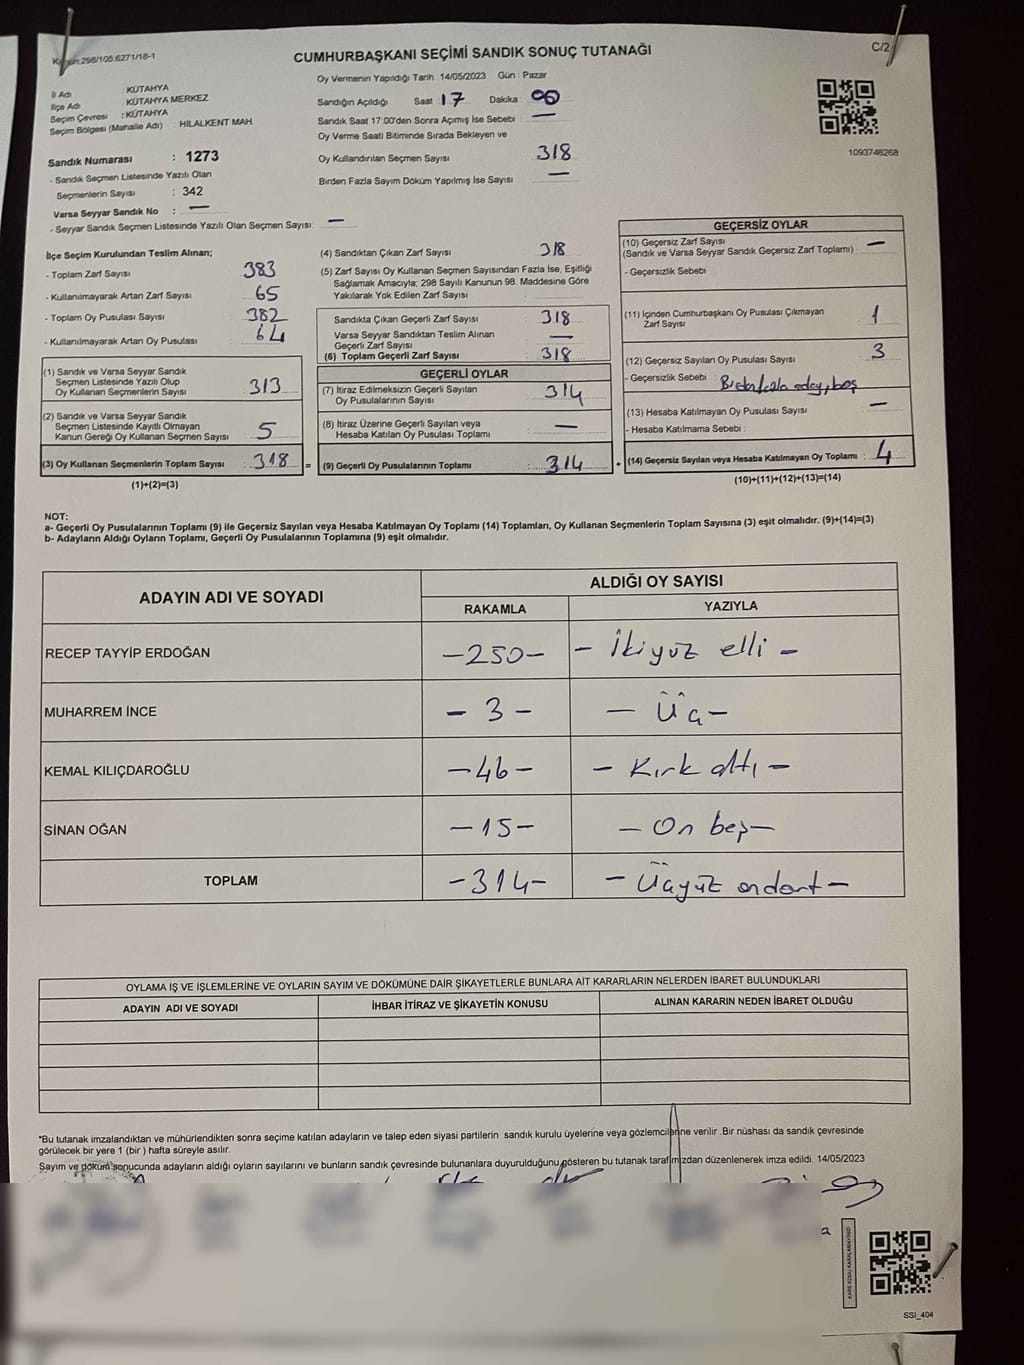 Kanun:298/105.6271/18-1
CUMHURBAŞKANI SEÇİMİ SANDIK SONUÇ TUTANAĞI
C/2
İl Adı : KÜTAHYA
İlçe Adı : KÜTAHYA MERKEZ
Seçim Çevresi : KÜTAHYA
Seçim Bölgesi (Mahalle Adı) : HILALKENT MAH.
Oy Vermenin Yapıldığı Tarih : 14/05/2023 Gün : Pazar
Sandığın Açıldığı Saat : 17 Dakika : 00
Sandık Saat 17:00'den Sonra Açımış İse Sebebi : —
Oy Verme Saati Bitiminde Sırada Bekleyen ve
Oy Kullandırılan Seçmen Sayısı : 318
Birden Fazla Sayım Döküm Yapılmış İse Sayısı : —
1093746268
Sandık Numarası : 1273
- Sandık Seçmen Listesinde Yazılı Olan
Seçmenlerin Sayısı : 342
Varsa Seyyar Sandık No : —
- Seyyar Sandık Seçmen Listesinde Yazılı Olan Seçmen Sayısı: —
İlçe Seçim Kurulundan Teslim Alınan;
- Toplam Zarf Sayısı : 383
- Kullanılmayarak Artan Zarf Sayısı : 65
- Toplam Oy Pusulası Sayısı : 382
- Kullanılmayarak Artan Oy Pusulası : 64
(1) Sandık ve Varsa Seyyar Sandık
Seçmen Listesinde Yazılı Olup
Oy Kullanan Seçmenlerin Sayısı : 313
(2) Sandık ve Varsa Seyyar Sandık
Seçmen Listesinde Kayıtlı Olmayan
Kanun Gereği Oy Kullanan Seçmen Sayısı : 5
(3) Oy Kullanan Seçmenlerin Toplam Sayısı : 318
(1)+(2)=(3)
(4) Sandıktan Çıkan Zarf Sayısı : 318
(5) Zarf Sayısı Oy Kullanan Seçmen Sayısından Fazla İse, Eşitliği
Sağlamak Amacıyla; 298 Sayılı Kanunun 98. Maddesine Göre
Yakılarak Yok Edilen Zarf Sayısı :
Sandıkta Çıkan Geçerli Zarf Sayısı : 318
Varsa Seyyar Sandıktan Teslim Alınan
Geçerli Zarf Sayısı : —
(6) Toplam Geçerli Zarf Sayısı : 318
GEÇERLİ OYLAR
(7) İtiraz Edilmeksizin Geçerli Sayılan
Oy Pusulalarının Sayısı : 314
(8) İtiraz Üzerine Geçerli Sayılan veya
Hesaba Katılan Oy Pusulası Toplamı : —
= (9) Geçerli Oy Pusulalarının Toplamı : 314
GEÇERSİZ OYLAR
(10) Geçersiz Zarf Sayısı
(Sandık ve Varsa Seyyar Sandık Geçersiz Zarf Toplamı) : —
- Geçersizlik Sebebi
(11) İçinden Cumhurbaşkanı Oy Pusulası Çıkmayan
Zarf Sayısı : 1
(12) Geçersiz Sayılan Oy Pusulası Sayısı : 3
- Geçersizlik Sebebi : Birden fazla aday, boş
(13) Hesaba Katılmayan Oy Pusulası Sayısı : —
- Hesaba Katılmama Sebebi :
+ (14) Geçersiz Sayılan veya Hesaba Katılmayan Oy Toplamı : 4
(10)+(11)+(12)+(13)=(14)
NOT:
a- Geçerli Oy Pusulalarının Toplamı (9) ile Geçersiz Sayılan veya Hesaba Katılmayan Oy Toplamı (14) Toplamları, Oy Kullanan Seçmenlerin Toplam Sayısına (3) eşit olmalıdır. (9)+(14)=(3)
b- Adayların Aldığı Oyların Toplamı, Geçerli Oy Pusulalarının Toplamına (9) eşit olmalıdır.
ADAYIN ADI VE SOYADI
ALDIĞI OY SAYISI
RAKAMLA YAZIYLA
RECEP TAYYİP ERDOĞAN -250- - İkiyüz elli -
MUHARREM İNCE - 3 - - Üç -
KEMAL KILIÇDAROĞLU -46- - Kırk altı -
SİNAN OĞAN -15- - On beş -
TOPLAM -314- - Üçyüz ondört -
OYLAMA İŞ VE İŞLEMLERİNE VE OYLARIN SAYIM VE DÖKÜMÜNE DAİR ŞİKAYETLERLE BUNLARA AİT KARARLARIN NELERDEN İBARET BULUNDUKLARI
ADAYIN ADI VE SOYADI İHBAR İTİRAZ VE ŞİKAYETİN KONUSU ALINAN KARARIN NEDEN İBARET OLDUĞU
*Bu tutanak imzalandıktan ve mühürlendikten sonra seçime katılan adayların ve talep eden siyasi partilerin sandık kurulu üyelerine veya gözlemcilerine verilir .Bir nüshası da sandık çevresinde
görülecek bir yere 1 (bir ) hafta süreyle asılır.
Sayım ve döküm sonucunda adayların aldığı oyların sayılarını ve bunların sandık çevresinde bulunanlara duyurulduğunu gösteren bu tutanak tarafımızdan düzenlenerek imza edildi. 14/05/2023
SSI_404